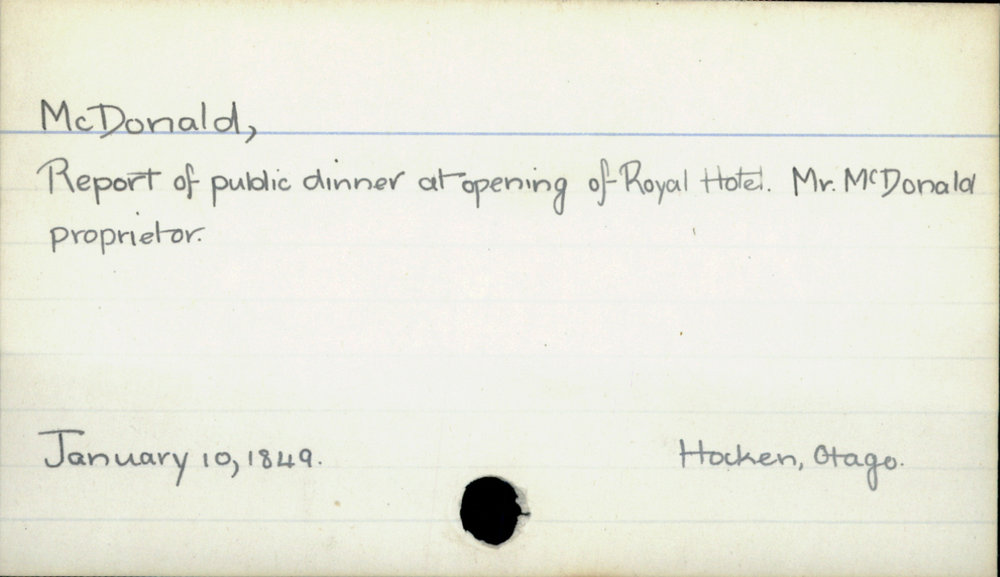 McDonald,
Report of public dinner at opening of Royal Hotel. Mr. McDonald
proprietor.
January 10, 1849.
Hocken, Otago.